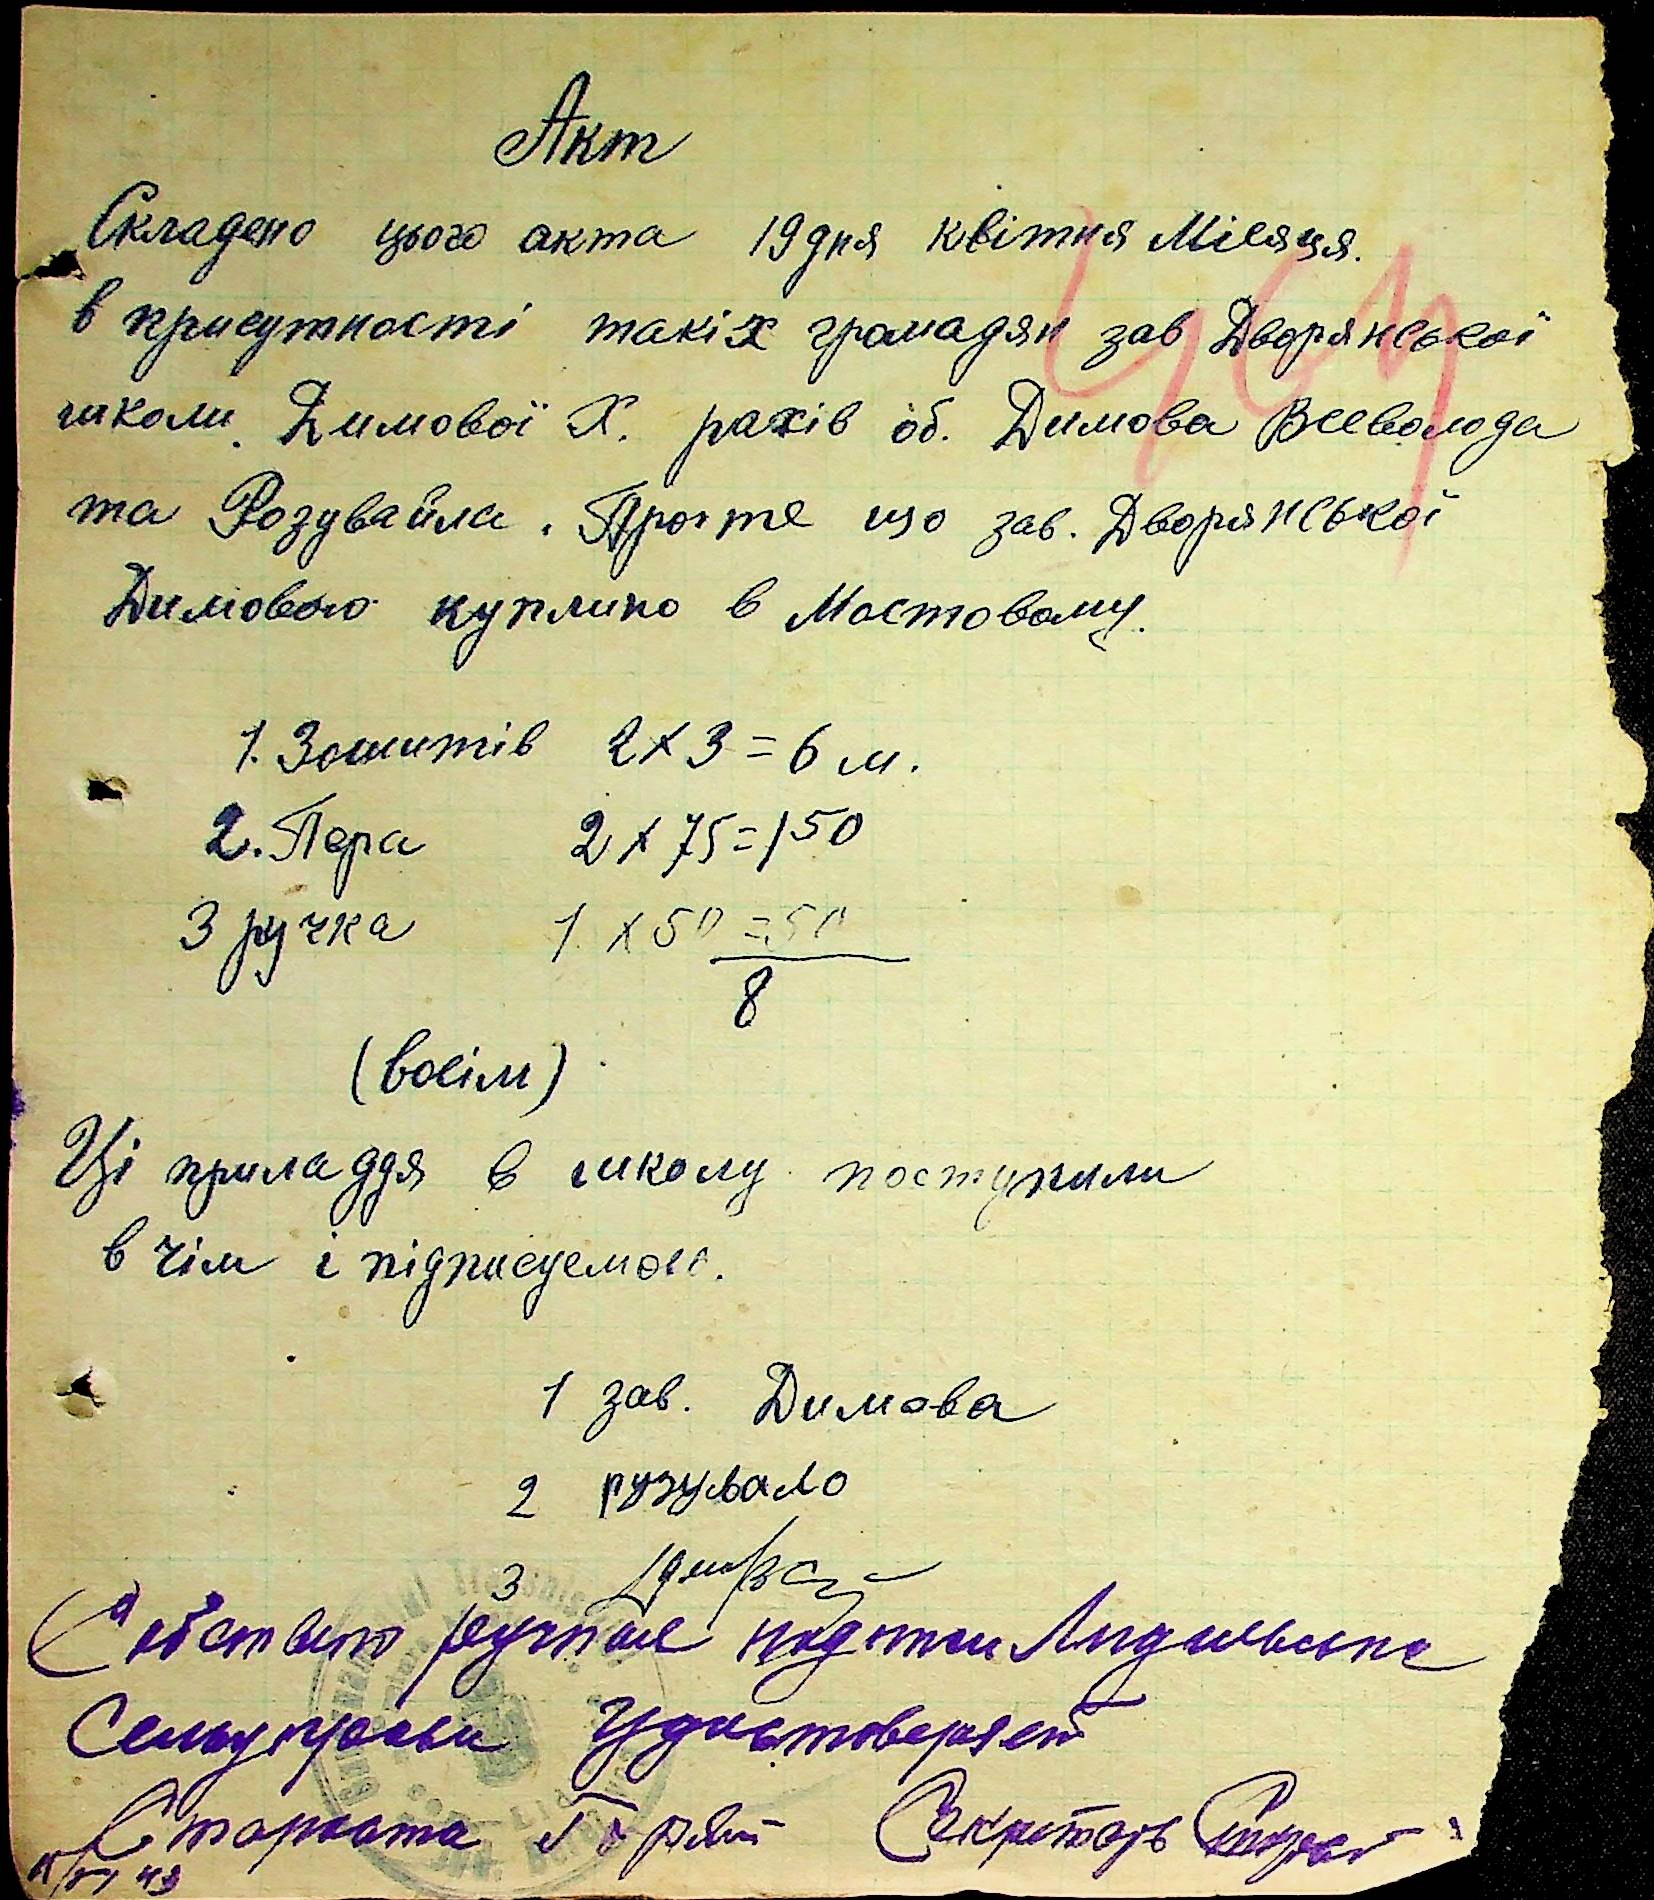 Акт
Складено цього акта 19 дня квітня Місяця.
в присутності такіх громадян зав Дворянської
школи. Димової Х. рахів об. Димова Всеволода
та Розувайла. Проте що зав. Дворянської
Димовою куплино в Мостовому.
1. Зошитів 2 х 3 = 6 м.
2. Пера 2 х 75 = 150
3 ручка 1 х 50 = 50
8
(восім)
Ці приладдя в школу поступили
в чім і підписуемось.
1 зав. Димова
2 рузувало
3
Собствено ручние подписи
Сельуправи Удостоверяет
Староста Секретарь